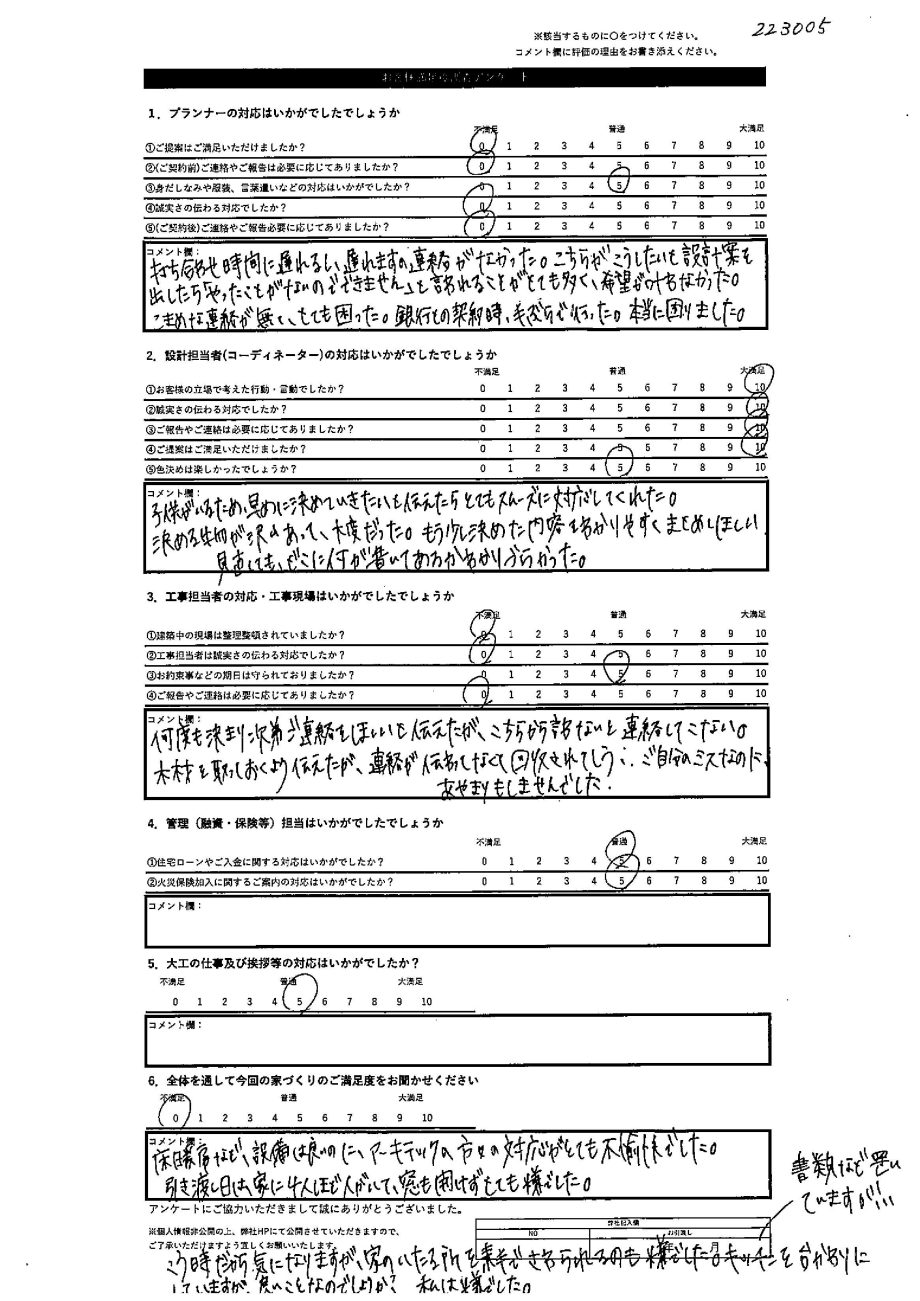 223005
※該当するものに○をつけてください。
コメント欄に評価の理由をお書き添えください。
1. プランナーの対応はいかがでしたでしょうか
不満足 普通 大満足
①ご提案はご満足いただけましたか? 0 1 2 3 4 5 6 7 8 9 10
②(ご契約前)ご連絡やご報告は必要に応じてありましたか? 0 1 2 3 4 5 6 7 8 9 10
③身だしなみや服装、言葉遣いなどの対応はいかがでしたか? 0 1 2 3 4 5 6 7 8 9 10
④誠実さの伝わる対応でしたか? 0 1 2 3 4 5 6 7 8 9 10
⑤(ご契約後)ご連絡やご報告必要に応じてありましたか? 0 1 2 3 4 5 6 7 8 9 10
コメント欄:
打ち合わせ時間に遅れるし、遅れますの連絡がなかった。こちらがこうしたいと設計案を
出したら「やったことがないのでできません」と言われることがとても多く、希望が叶わなかった。
こまめな連絡が無く、とても困った。銀行との契約時、手ぶらで行った。本当に困りました。
2. 設計担当者(コーディネーター)の対応はいかがでしたでしょうか
不満足 普通 大満足
①お客様の立場で考えた行動・言動でしたか? 0 1 2 3 4 5 6 7 8 9 10
②誠実さの伝わる対応でしたか? 0 1 2 3 4 5 6 7 8 9 10
③ご報告やご連絡は必要に応じてありましたか? 0 1 2 3 4 5 6 7 8 9 10
④ご提案はご満足いただけましたか? 0 1 2 3 4 5 6 7 8 9 10
⑤色決めは楽しかったでしょうか? 0 1 2 3 4 5 6 7 8 9 10
コメント欄:
子供がいるため、早めに決めていきたいと伝えたらとてもスムーズに対応してくれた。
決める生地が沢山あって、大変だった。もう少し決めた内容をわかりやすくまとめてほしい
見直しても、どこに何が書いてあるかわかりづらかった。
3. 工事担当者の対応・工事現場はいかがでしたでしょうか
不満足 普通 大満足
①建築中の現場は整理整頓されていましたか? 0 1 2 3 4 5 6 7 8 9 10
②工事担当者は誠実さの伝わる対応でしたか? 0 1 2 3 4 5 6 7 8 9 10
③お約束事などの期日は守られておりましたか? 0 1 2 3 4 5 6 7 8 9 10
④ご報告やご連絡は必要に応じてありましたか? 0 1 2 3 4 5 6 7 8 9 10
コメント欄:
何度も決まり次第ご連絡をほしいと伝えたが、こちらから言わないと連絡してこない。
木材を取っておくよう伝えたが、連絡が伝わってなくて回収されてしまう。ご自分のミスなのに、
あやまりもしませんでした。
4. 管理(融資・保険等)担当はいかがでしたでしょうか
不満足 普通 大満足
①住宅ローンやご入金に関する対応はいかがでしたか? 0 1 2 3 4 5 6 7 8 9 10
②火災保険加入に関するご案内の対応はいかがでしたか? 0 1 2 3 4 5 6 7 8 9 10
コメント欄:
5. 大工の仕事及び挨拶等の対応はいかがでしたか?
不満足 普通 大満足
0 1 2 3 4 5 6 7 8 9 10
コメント欄:
6. 全体を通して今回の家づくりのご満足度をお聞かせください
不満足 普通 大満足
0 1 2 3 4 5 6 7 8 9 10
コメント欄:
床暖房など、設備は良いのに、アーキテックの方々の対応がとても不愉快でした。
引き渡し日は、家に4人ほど人がいて、窓も開けずとても嫌でした。
書類など置い
ていますが!!!
アンケートにご協力いただきまして誠にありがとうございました。
※個人情報非公開の上、弊社HPにて公開させていただきますので、
ご了承いただけますよう宜しくお願いいたします。
弊社記入欄
NO お引渡し
月
こう時だから気になりますが、家のいたる所を素手でさわられるのも嫌でした。キッチンを台がわりに
していますが、良いことなのでしょうか? 私は嫌でした。